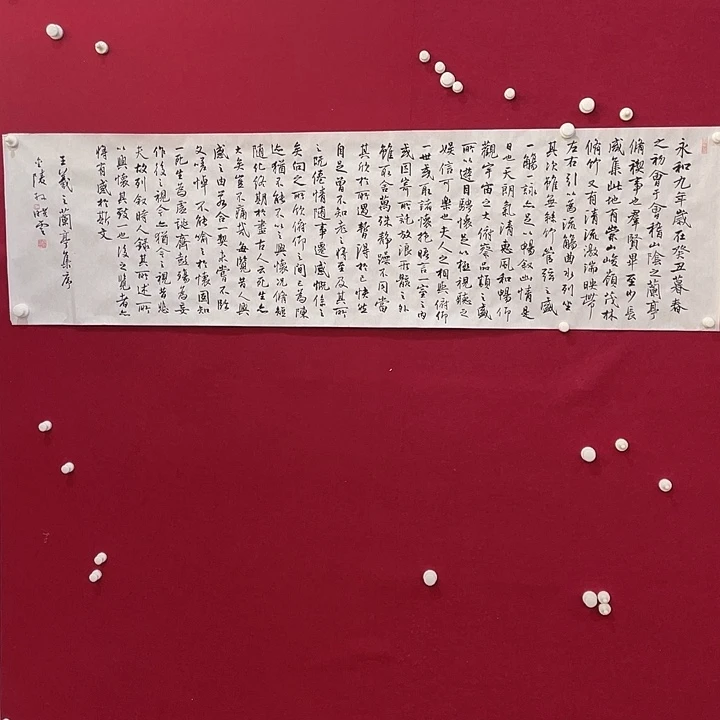 永和九年歲在癸丑暮春
之初會于會稽山陰之蘭亭
脩稧事也群賢畢至少長
咸集此地有崇山峻嶺茂林
脩竹又有清流激湍映帶
左右引以為流觴曲水列坐
其次雖無絲竹管弦之盛
一觴一詠亦足以暢叙幽情是
日也天朗氣清惠風和暢仰
觀宇宙之大俯察品類之盛
所以遊目騁懷足以極視聽之
娛信可樂也夫人之相與俯仰
一世或取諸懷抱晤言一室之內
或因寄所託放浪形骸之外
雖取舍萬殊靜躁不同當
其欣於所遇暫得於己快然
自足曾不知老之將至及其所
之既倦情隨事遷感慨係之
矣向之所欣俯仰之間已為陳
迹猶不能不以之興懷況脩短
隨化終期於盡古人云死生亦
大矣豈不痛哉每覽昔人興
感之由若合一契未嘗不臨
文嗟悼不能喻之於懷固知
一死生為虛誕齊彭殤為妄
作後之視今亦猶今之視昔悲
夫故列叙時人錄其所述所
以興懷其致一也後之覽者亦
將有感於斯文
王羲之蘭亭集序
金陵